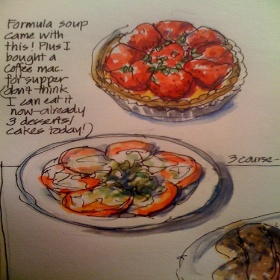 Formula soup
came with
this! Plus I
bought a
Coffee mac.
for supper
don't think
I can eat it
now-already
3 desserts/
cakes today!
3 course-